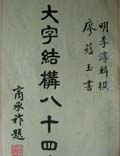 明李淳輯撰
廖蘊玉書
大字結構八十四
商承祚題